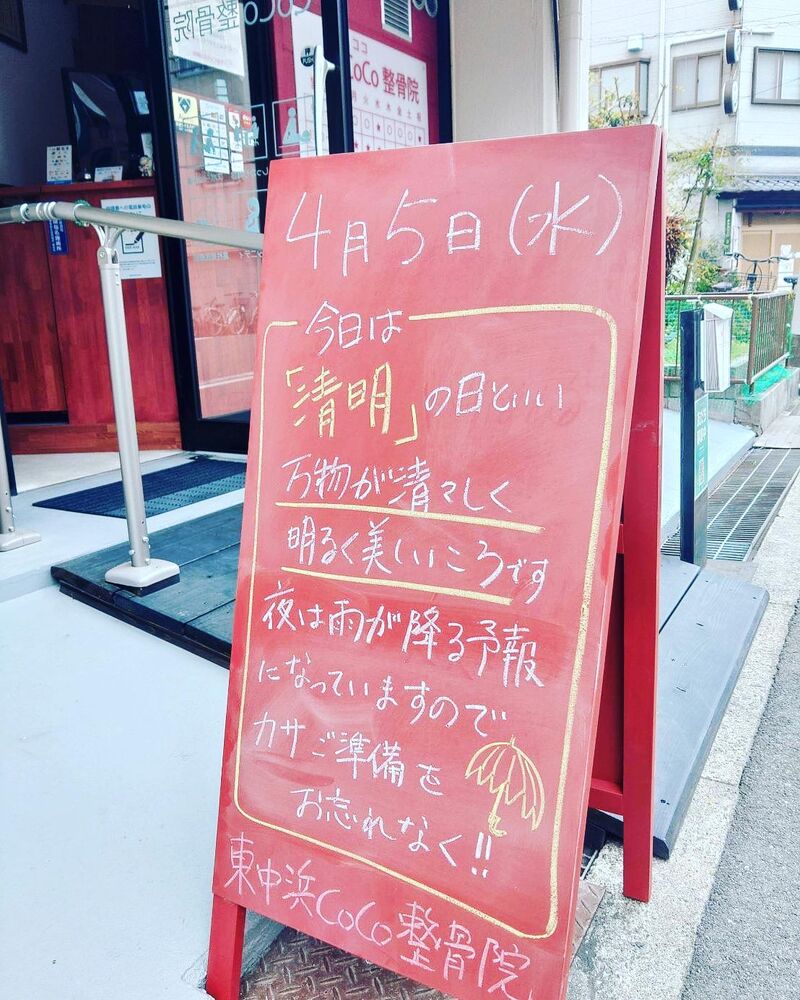 CoCo 整骨院
ココ
CoCo 整骨院
4月5日(水)
今日は
「清明」の日といい
万物が清々しく
明るく美しいころです
夜は雨が降る予報
になっていますので
カサご準備を
お忘れなく!!
東中浜CoCo整骨院